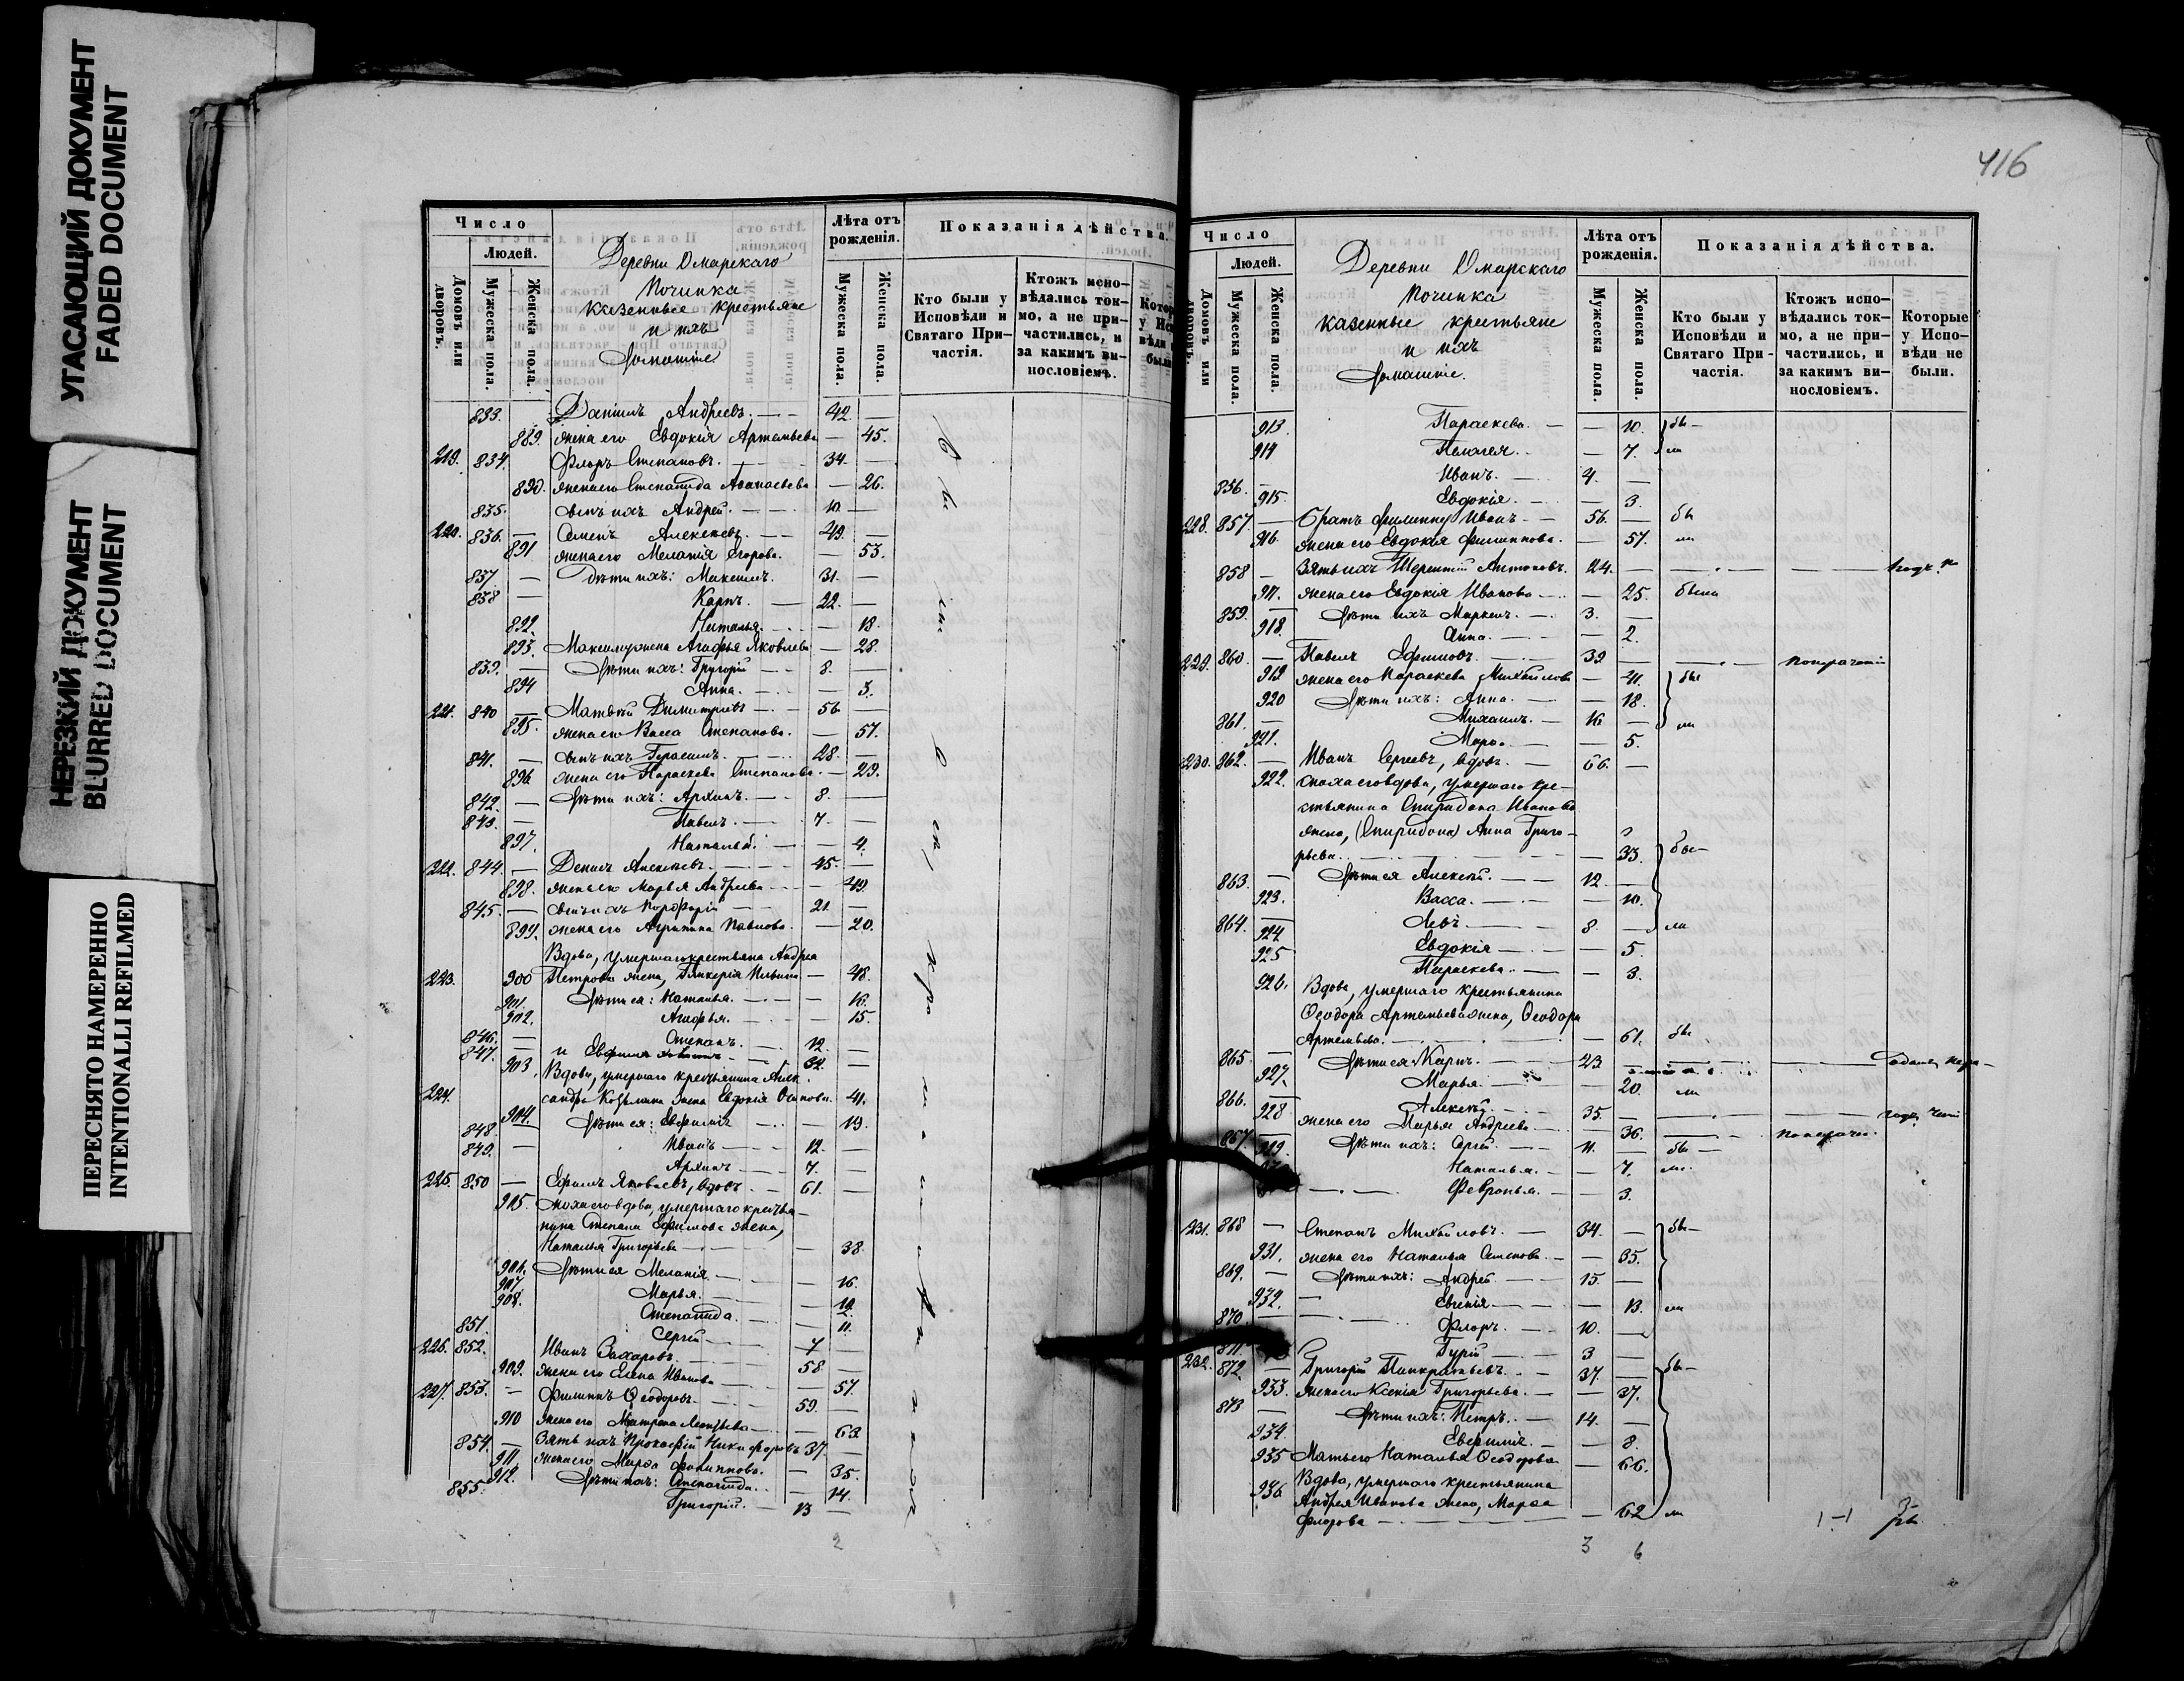 УГАСАЮЩИЙ ДОКУМЕНТ
FADED DOCUMENT
НЕРЕЗКИЙ ДОКУМЕНТ
BLURRED DOCUMENT
ПЕРЕСНЯТО НАМЕРЕННО
INTENTIONALLI REFILMED
Число
Людей.
Домовъ или дворовъ.
Мужеска пола.
Женска пола.
Деревни Омарскаго
Починка
казенные крестьяне
и ихъ
домашніе
Лѣта отъ рожденія.
Мужеска пола.
Женска пола.
Показанія дѣйства.
Кто были у Исповѣди и Святаго Причастія.
Ктожъ исповѣдались токмо, а не причастились, и за какимъ винословіемъ.
833. Даніилъ Андреевъ. 42.
889. жена его Евдокія Артемьева 45.
219. 834. Флоръ Степановъ. 34.
890. жена его Степанида Аѳанасьева 26.
835. сынъ ихъ Андрей. 10.
220. 836. Семенъ Алексеевъ. 49.
891 жена его Меланія Егорова. 53.
837 Дѣти ихъ: Максимъ. 31.
838 Карпъ. 22.
892. Наталья. 13.
893. Максима жена Агафья Яковлева 28.
839. Дѣти ихъ: Григорій 8.
894 Анна. 3.
221. 840 Матвѣй Димитріевъ 56
895. жена его Васса Степанова. 57.
841. сынъ ихъ Герасимъ. 28.
896 жена его Параскева Степанова. 29.
842. Дѣти ихъ: Архипъ. 8.
843. Павелъ. 7.
897. Наталья. 4.
222. 844. Денисъ Алексеевъ. 45.
898. жена его Марья Андреева 49.
845. сынъ ихъ Порфирій 21.
899. жена его Агрипина Павлова. 20.
Вдова, умершаго крестьяна Андрея
223. 900 Петрова жена, Гликерія Ильина 48.
901. Дѣти ея: Наталья. 16.
902. Агафья. 15.
846. Степанъ. 12.
847. и Евфимъ 32.
903. Вдова, умершаго крестьянина Алек
224. сандра Козьмина жена Евдокія Осипова. 41.
904. Дѣти ея: Евфимія 19.
848 Иванъ 12.
849. Архипъ 7.
225. 850 Ефимъ Яковлевъ, вдовъ. 61.
905. сноха его вдова, умершаго крестья
нина Степана Ефимова жена,
Наталья Григорьева 38.
906. Дѣти ея Меланія. 16
907. Марья. 12.
908. Степанида. 11.
851. Сергій 7
226. 852. Иванъ Захаровъ 58
909. жена его Елена Иванова 57.
227. 853. Филиппъ Ѳеодоровъ. 59.
910 жена его Матрона Леонтьева 63.
854. Зять ихъ Прокофій Никифоровъ 37.
911. жена его Марѳа Филиппова. 35.
912. Дѣти ихъ: Степанида. 14.
855. Григорій. 13
2
416
Число
Людей.
Домовъ или дворовъ.
Мужеска пола.
Женска пола.
Деревни Омарскаго
Починка
казенные крестьяне
и ихъ
домашніе.
Лѣта отъ рожденія.
Мужеска пола.
Женска пола.
Показанія дѣйства.
Кто были у Исповѣди и Святаго Причастія.
Ктожъ исповѣдались токмо, а не причастились, и за какимъ винословіемъ.
Которые у Исповѣди не были.
913. Параскева. 10. бы
914 Пелагея. 7. ли
856. Иванъ. 4.
915. Евдокія. 3.
228. 857. Братъ Филиппу Иванъ 56. бы
916 жена его Евдокія Филиппова. 57. ли
858 Зять ихъ Терентій Антоновъ. 24.
917. жена его Евдокія Иванова 25. была
859. Дѣти ихъ Маркелъ. 3.
918. Анна. 2.
229. 860. Павелъ Ефимовъ. 39
919 жена его Параскева Михайлова 41. бы
920 Дѣти ихъ: Анна. 18.
861. Михаилъ. 16 ли
921. Марѳа. 5.
230. 862. Иванъ Сергеевъ, вдовъ. 66.
922. сноха его вдова, умершаго кре-
стьянина Спиридона Иванова
жена, (Спиридона) Анна Григо-
рьева. 33. бы
863. Дѣти ея Алексѣй. 12.
923. Васса. 10.
864. Левъ 8. ли
924 Евдокія 5.
925 Параскева. 3.
926. Вдова, умершаго крестьянина
Ѳеодора Артемьева жена, Ѳеодора
Артемьева. 61. бы
865. Дѣти ея Карпъ. 23
927. Марья. 20. ли
866. Алексѣй. 35.
928 жена его Марья Андреева 36.
867. 929. Дѣти ихъ: Сергій. 11. бы
Наталья. 7. ли.
Февронья. 3.
231. 868 Степанъ Михайловъ. 34. бы
931. жена его Наталья Семенова. 35.
869. Дѣти ихъ: Андрей 15.
932. Евгенія 13. ли
870 Флоръ. 10.
871 Гурій 3
232. 872. Григорій Панкратьевъ. 37. бы
933. жена его Ксенія Григорьева. 37.
873 Дѣти ихъ: Петръ. 14.
934. Евфимія. 8.
935 Мать его Наталья Ѳеодорова 66.
936 Вдова, умершаго крестьянина
Андрея Иванова жена, Марѳа
Флорова 62 ли
3 6